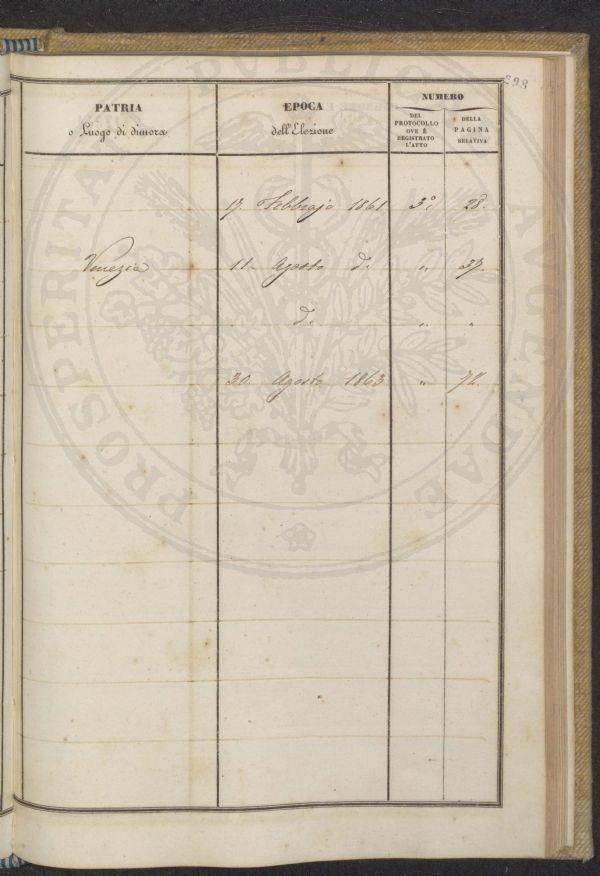 298
PATRIA
o Luogo di dimora
EPOCA
dell'Elezione
NUMERO
DEL
PROTOCOLLO
OVE È
REGISTRATO
L'ATTO
DELLA
PAGINA
RELATIVA
17. Febbrajo 1861 3° 28.
Venezia 11. Agosto d.° " 37.
d.° " "
30. Agosto 1863 " 72.
PROSPERITATI PUBLICAE AUGENDAE